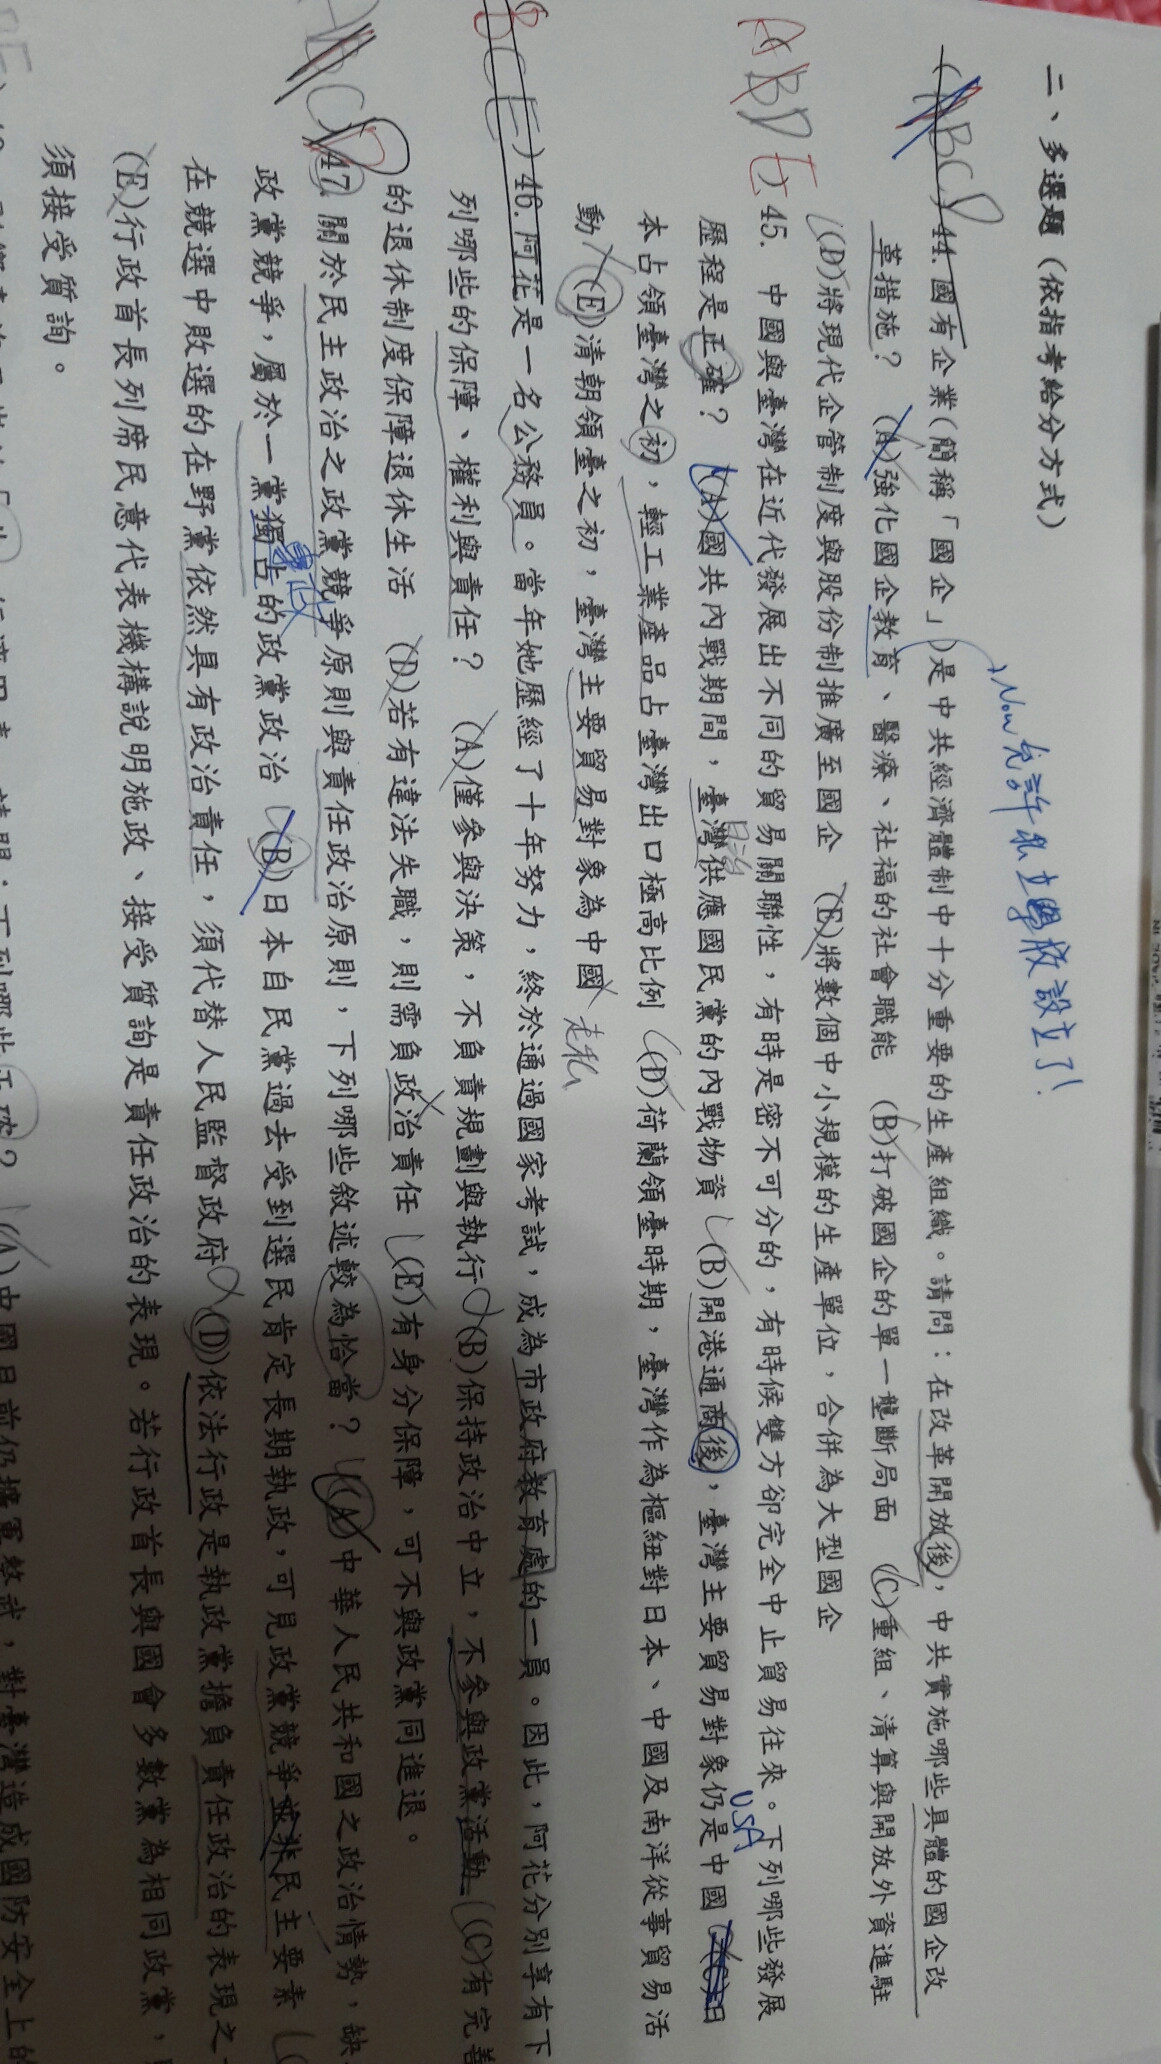 二、多選題（依指考給分方式）
Now允許私立學校設立了!
BCD
44.國有企業(簡稱「國企」)是中共經濟體制中十分重要的生產組織。請問：在改革開放後，中共實施哪些具體的國企改
革措施？ (A)強化國企教育、醫療、社福的社會職能 (B)打破國企的單一壟斷局面 (C)重組、清算與開放外資進駐
(D)將現代企管制度與股份制推廣至國企 (E)將數個中小規模的生產單位，合併為大型國企
ABDE
45. 中國與臺灣在近代發展出不同的貿易關聯性，有時是密不可分的，有時候雙方卻完全中止貿易往來。下列哪些發展
USA
歷程是正確？ (A)國共內戰期間，臺灣供應國民黨的內戰物資 (B)開港通商後，臺灣主要貿易對象仍是中國 (C)日
本占領臺灣之初，輕工業產品占臺灣出口極高比例 (D)荷蘭領臺時期，臺灣作為樞紐對日本、中國及南洋從事貿易活
動 (E)清朝領臺之初，臺灣主要貿易對象為中國 走私
BCE
46.阿花是一名公務員。當年她歷經了十年努力，終於通過國家考試，成為市政府教育處的一員。因此，阿花分別享有下
列哪些的保障、權利與責任？ (A)僅參與決策，不負責規劃與執行 (B)保持政治中立，不參與政黨活動 (C)有完善
的退休制度保障退休生活 (D)若有違法失職，則需負政治責任 (E)有身分保障，可不與政黨同進退。
47.關於民主政治之政黨競爭原則與責任政治原則，下列哪些敘述較為恰當？ (A)中華人民共和國之政治情勢，缺
政黨競爭，屬於一黨獨占的政黨政治 (B)日本自民黨過去受到選民肯定長期執政，可見政黨競爭並非民主要素 (C
在競選中敗選的在野黨依然具有政治責任，須代替人民監督政府 (D)依法行政是執政黨擔負責任政治的表現之
(E)行政首長列席民意代表機構說明施政、接受質詢是責任政治的表現。若行政首長與國會多數黨為相同政黨，
須接受質詢。
(A)中國目前仍擴軍整武，對臺灣造成國防安全上的